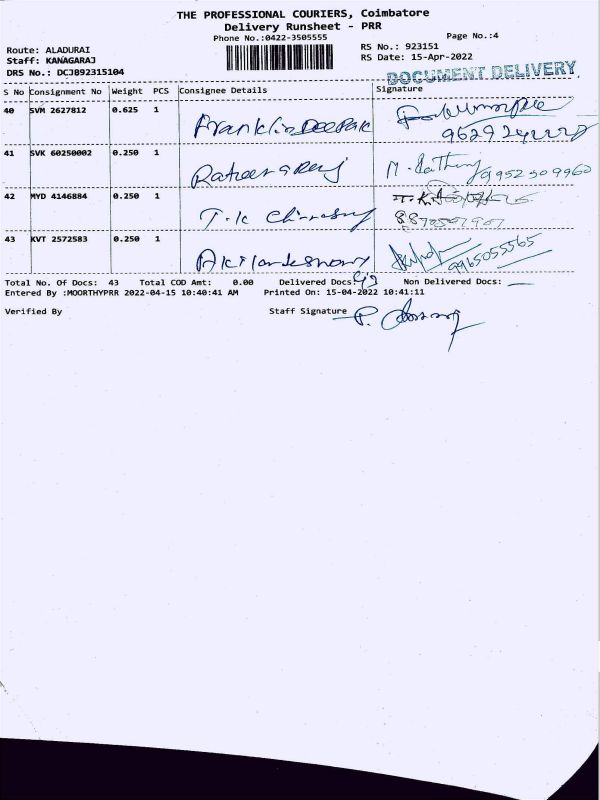 THE PROFESSIONAL COURIERS, Coimbatore
Delivery Runsheet - PRR
Phone No.:0422-3505555 Page No.:4
Route: ALADURAI RS No.: 923151
Staff: KANAGARAJ RS Date: 15-Apr-2022
DRS No.: DCJ892315104
DOCUMENT DELIVERY
S No Consignment No Weight PCS Consignee Details Signature
40 SVM 2627812 0.625 1 Franklin Deepak
41 SVK 60250002 0.250 1 9952509960
42 MYD 4146884 0.250 1 T.K
43 KVT 2572583 0.250 1 9965055565
Total No. Of Docs: 43 Total COD Amt: 0.00 Delivered Docs: Non Delivered Docs:
Entered By :MOORTHYPRR 2022-04-15 10:40:41 AM Printed On: 15-04-2022 10:41:11
Verified By Staff Signature